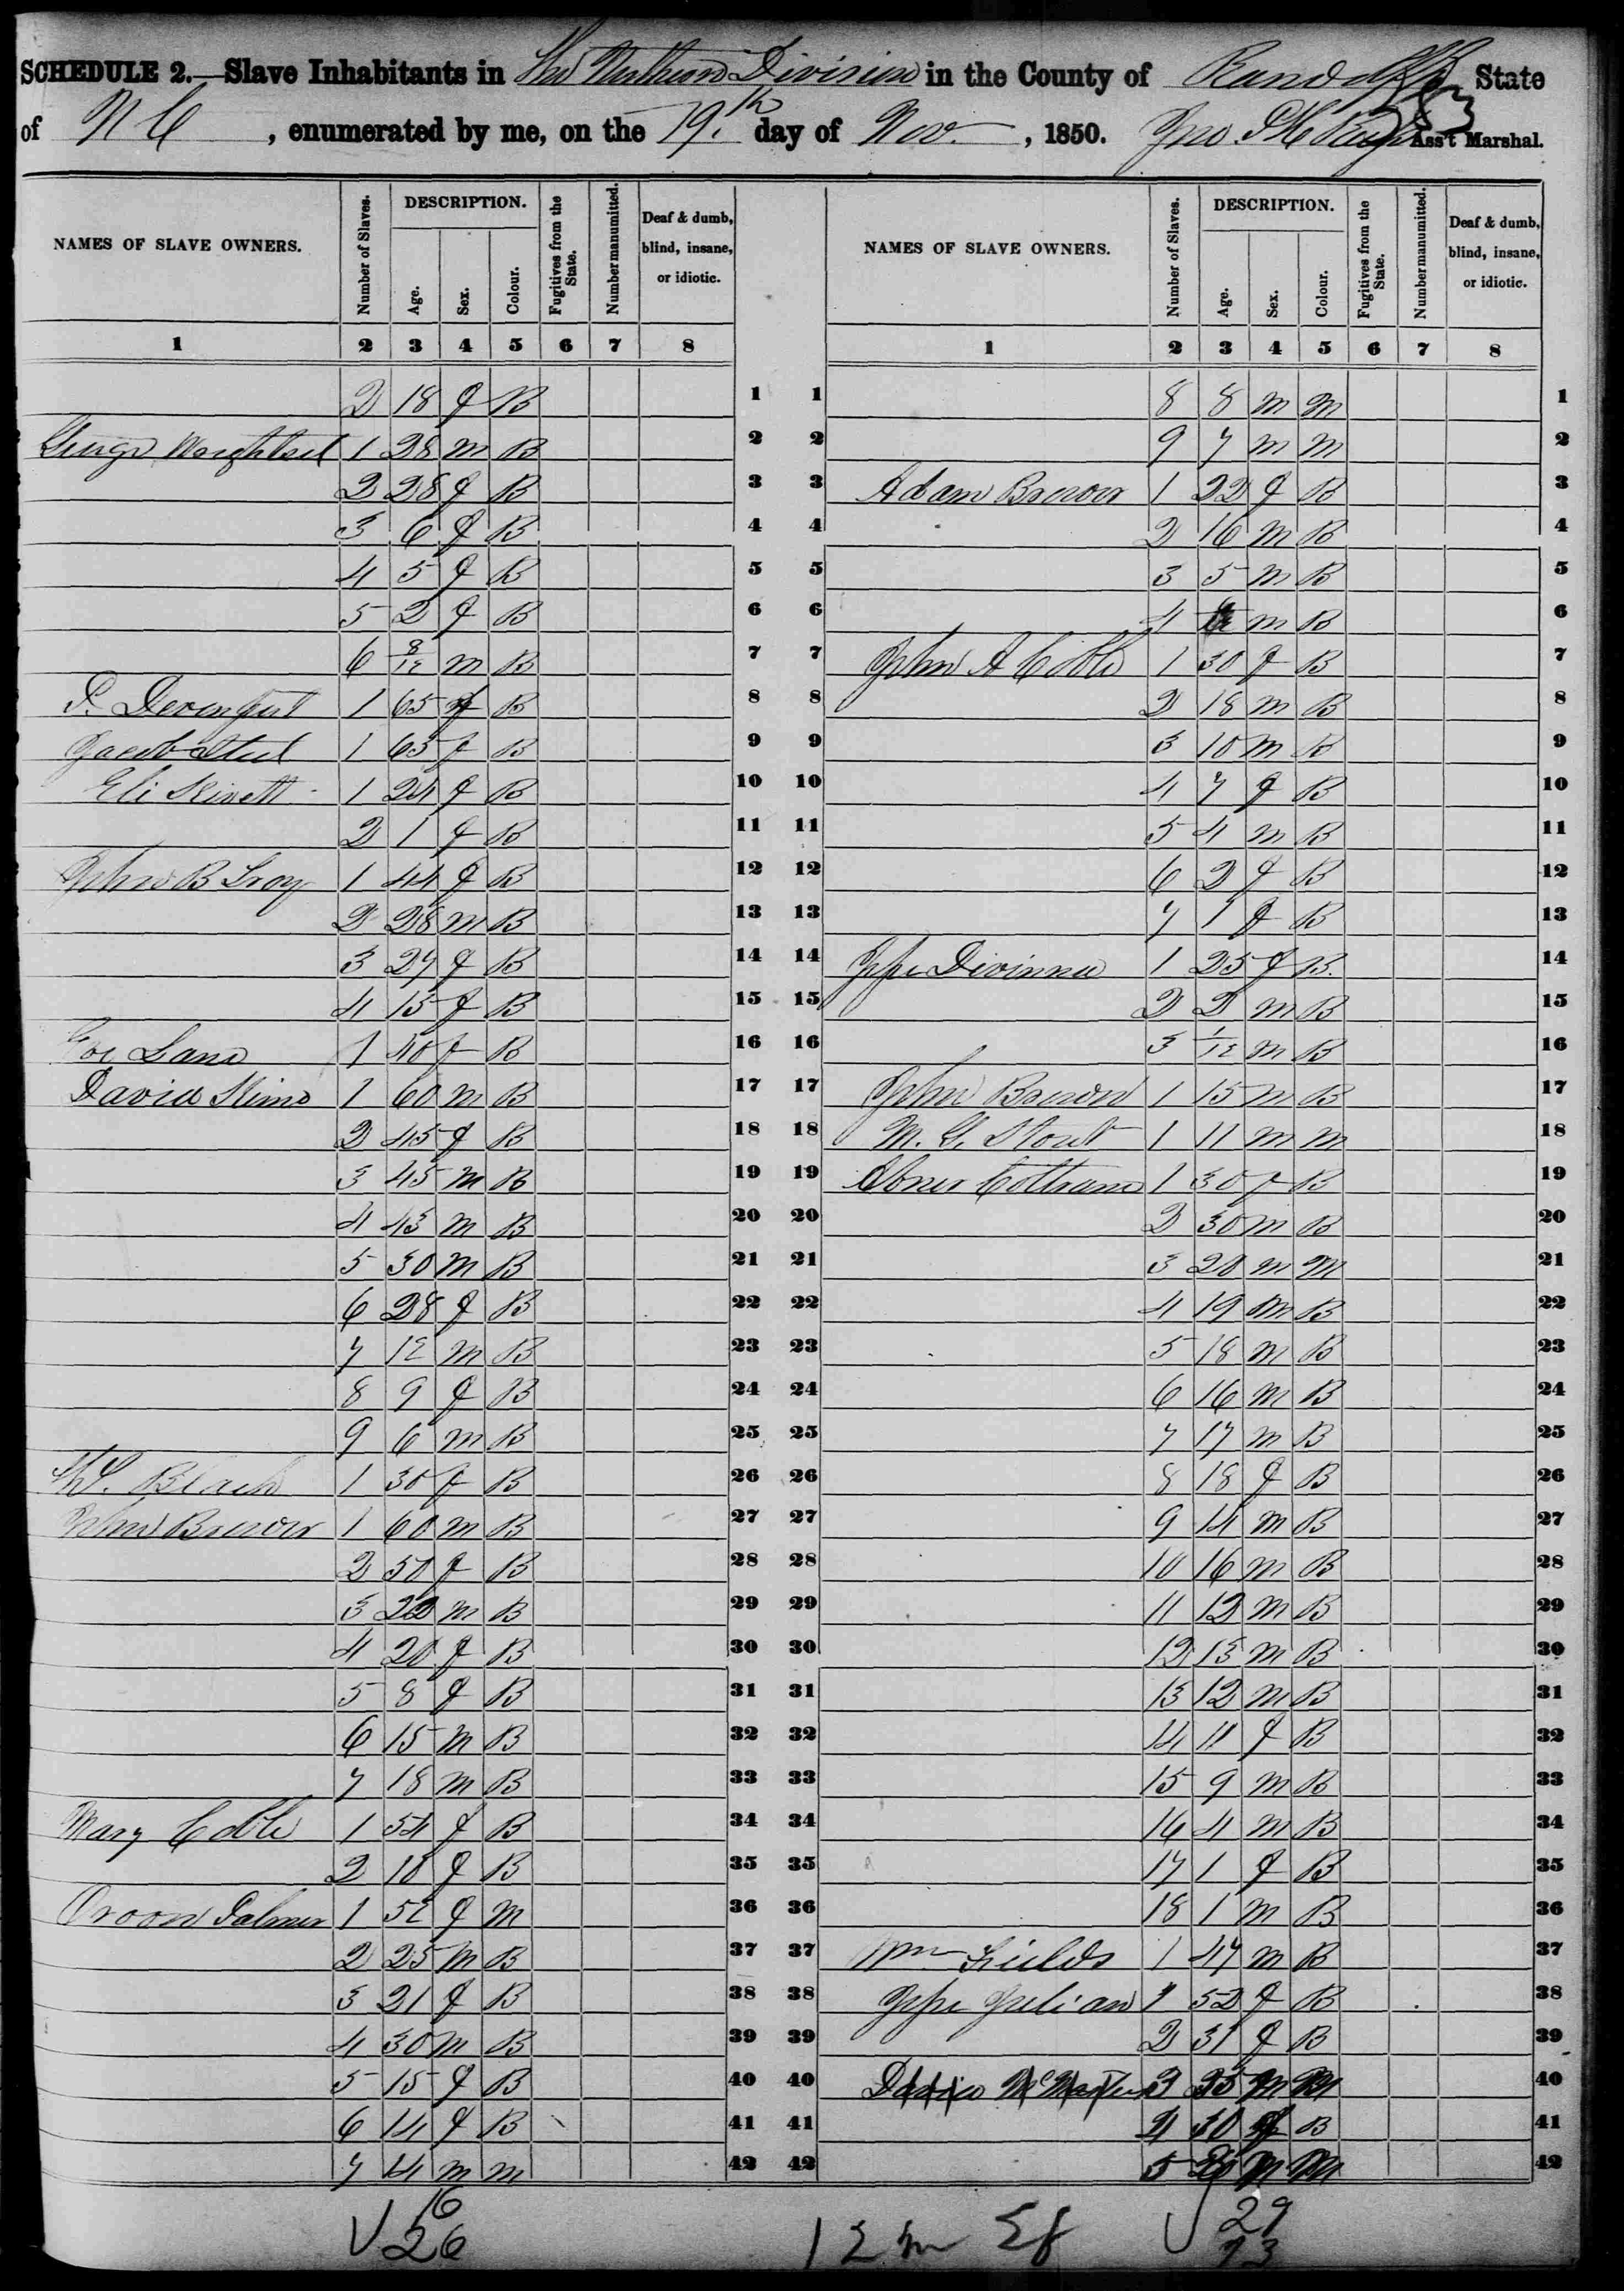 SCHEDULE 2.—Slave Inhabitants in The Northern Division in the County of Randolph State
of N C, enumerated by me, on the 19th day of Nov., 1850. Jno Ass't Marshal.
283
NAMES OF SLAVE OWNERS. Number of Slaves. DESCRIPTION. Age. Sex. Colour. Fugitives from the State. Number manumitted. Deaf & dumb, blind, insane, or idiotic.
NAMES OF SLAVE OWNERS. Number of Slaves. DESCRIPTION. Age. Sex. Colour. Fugitives from the State. Number manumitted. Deaf & dumb, blind, insane, or idiotic.
1 2 3 4 5 6 7 8 1 2 3 4 5 6 7 8
2 18 f B 1
1 8 8 m m 1
1 28 m B 2
2 9 7 m m 2
2 28 f B 3
3 Adam Brower 1 22 f B 3
3 6 f B 4
4 2 16 m B 4
4 5 f B 5
5 3 5 m B 5
5 2 f B 6
6 4 m B 6
6 8/12 m B 7
7 John A Coble 1 30 f B 7
1 65 f B 8
8 2 18 m B 8
Jacob Steel 1 65 f B 9
9 3 10 m B 9
Eli Kivett 1 24 f B 10
10 4 7 f B 10
2 1 f B 11
11 5 4 m B 11
John B Troy 1 44 f B 12
12 6 2 f B 12
2 28 m B 13
13 7 1 f B 13
3 27 f B 14
14 1 25 f B. 14
4 15 f B 15
15 2 2 m B 15
Lane 1 40 f B 16
16 3 1/12 m B 16
David Kime 1 60 m B 17
17 John Brower 1 15 m B 17
2 45 f B 18
18 M. G. Stout 1 11 m m 18
3 45 m B 19
19 Abner Coltrane 1 30 f B 19
4 43 m B 20
20 2 30 m B 20
5 30 m B 21
21 3 20 m m 21
6 28 f B 22
22 4 19 m B 22
7 12 m B 23
23 5 18 m B 23
8 9 f B 24
24 6 16 m B 24
9 6 m B 25
25 7 17 m B 25
1 30 f B 26
26 8 18 f B 26
John Brower 1 60 m B 27
27 9 14 m B 27
2 50 f B 28
28 10 16 m B 28
3 22 m B 29
29 11 12 m B 29
4 20 f B 30
30 12 13 m B 30
5 8 f B 31
31 13 12 m B 31
6 15 m B 32
32 14 11 f B 32
7 18 m B 33
33 15 9 m B 33
Mary Coble 1 54 f B 34
34 16 4 m B 34
2 18 f B 35
35 17 1 f B 35
Palmer 1 52 f m 36
36 18 1 m B 36
2 25 m B 37
37 Wm Fields 1 47 m B 37
3 21 f B 38
38 Julian 1 52 f B 38
4 30 m B 39
39 2 31 f B 39
5 15 f B 40
40 3 35 m m 40
6 14 f B 41
41 4 30 f B 41
7 14 m m 42
42 5 m m 42
16
26
29